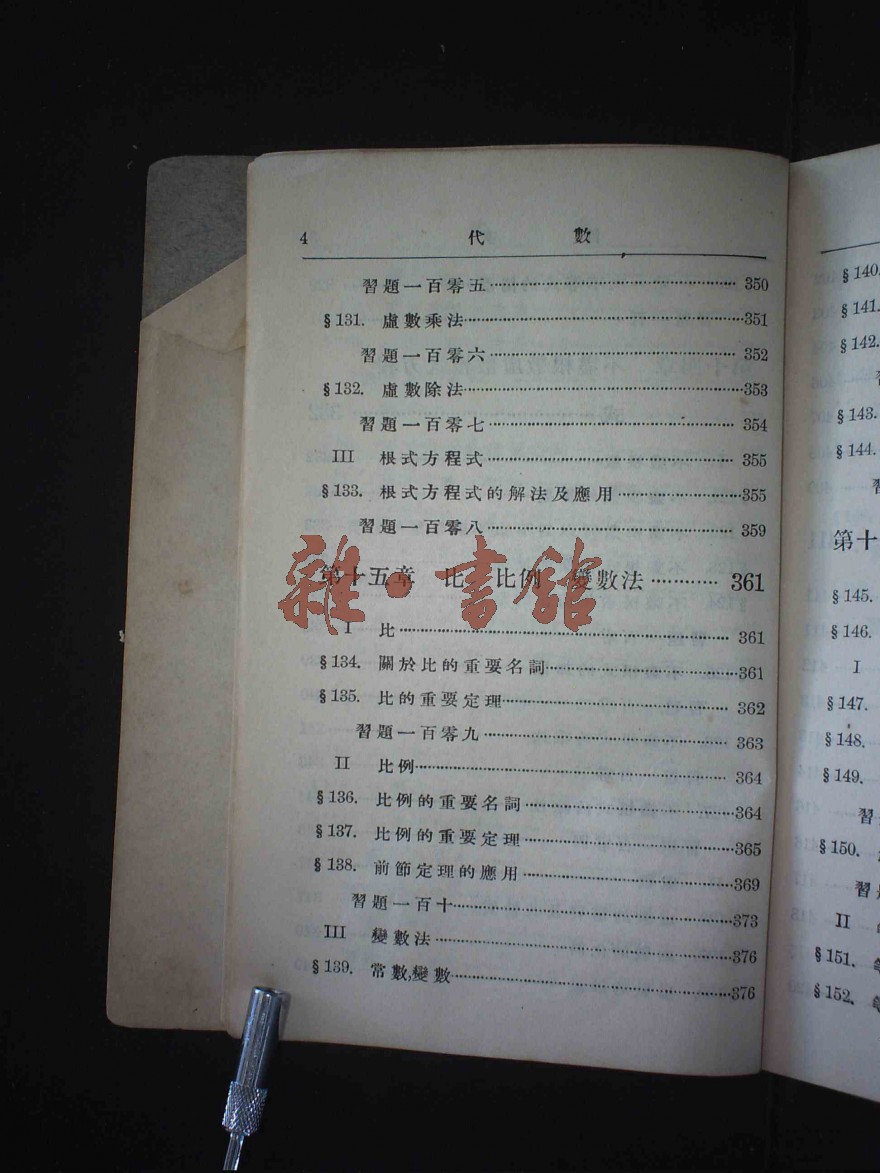 4 代 數
習題一百零五 350
§131. 虛數乘法 351
習題一百零六 352
§132. 虛數除法 353
習題一百零七 354
III 根式方程式 355
§133. 根式方程式的解法及應用 355
習題一百零八 359
第十五章 比 比例 變數法 361
雜·書館
I 比 361
§134. 關於比的重要名詞 361
§135. 比的重要定理 362
習題一百零九 363
II 比例 364
§136. 比例的重要名詞 364
§137. 比例的重要定理 365
§138. 前節定理的應用 369
習題一百十 373
III 變數法 376
§139. 常數,變數 376
§140.
§141.
§142.
§143.
§144.
第十
§145.
§146.
I
§147.
§148.
§149.
習
§150.
習
II
§151.
§152.